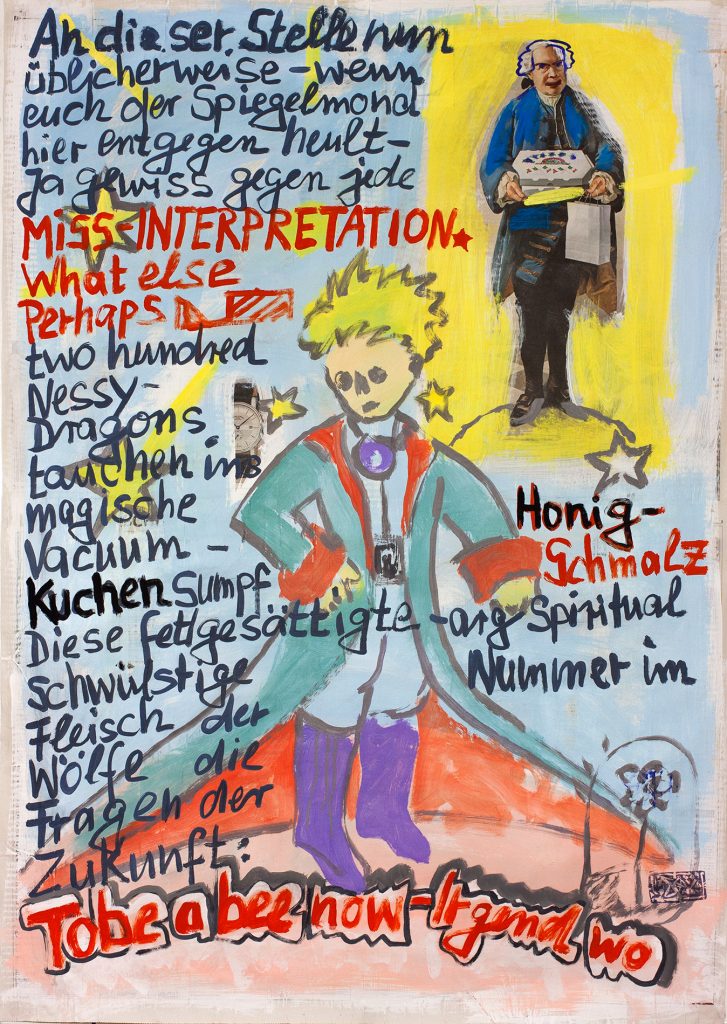 An dieser Stelle nun
üblicherweise - wenn
euch der Spiegelmond
hier entgegen heult -
Ja gewiss gegen jede
MiSS-INTERPRETATION.
What else
Perhaps
two hundred
Nessy-
Dragons
tauchen ins
magische
Vacuum -
Honig-
Schmalz
Kuchen Sumpf
Diese fettgesättigte - arg Spiritual
Schwülstige Nummer im
Fleisch der
Wölfe die
Fragen der
Zukunft:
To be a bee now - Irgend wo